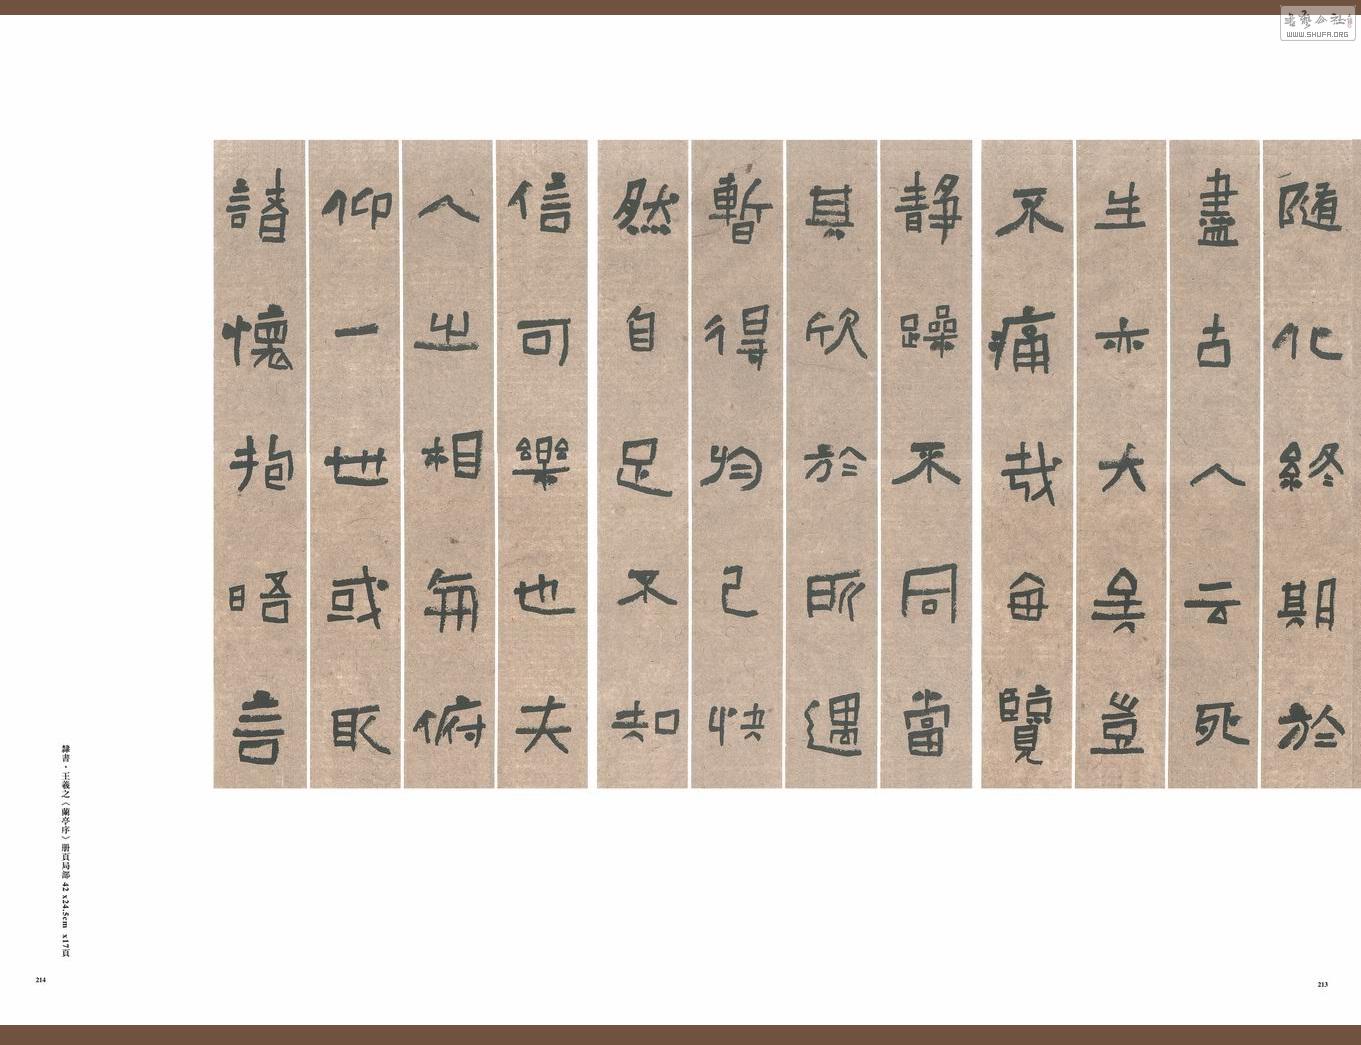 隨化終期於
盡古人云死
生亦大矣豈
不痛哉每覽
静躁不同當
其欣於所遇
暫得於己快
然自足不知
信可樂也夫
人之相與俯
仰一世或取
諸懷抱晤言
隸書·王羲之《蘭亭序》册頁局部 42 x24.5cm x17頁
214
213
书艺公社
WWW.SHUFA.ORG